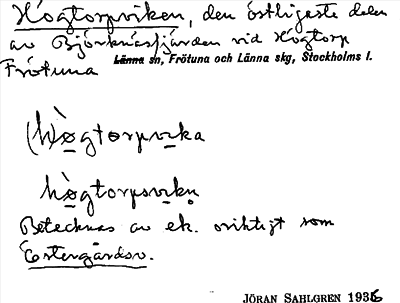 Högtorpviken, den östligaste delen
av Björknäsfjärden vid Högtorp
Frötuna L̶ä̶n̶n̶a̶ sn, Frötuna och Länna skg, Stockholms l.
(h)ò̱gtorpvi̱ka
hò̱gtorpsvi̱kn̥
Betecknas av ek. oriktigt som
Östergårdsv.
JÖRAN SAHLGREN 1936